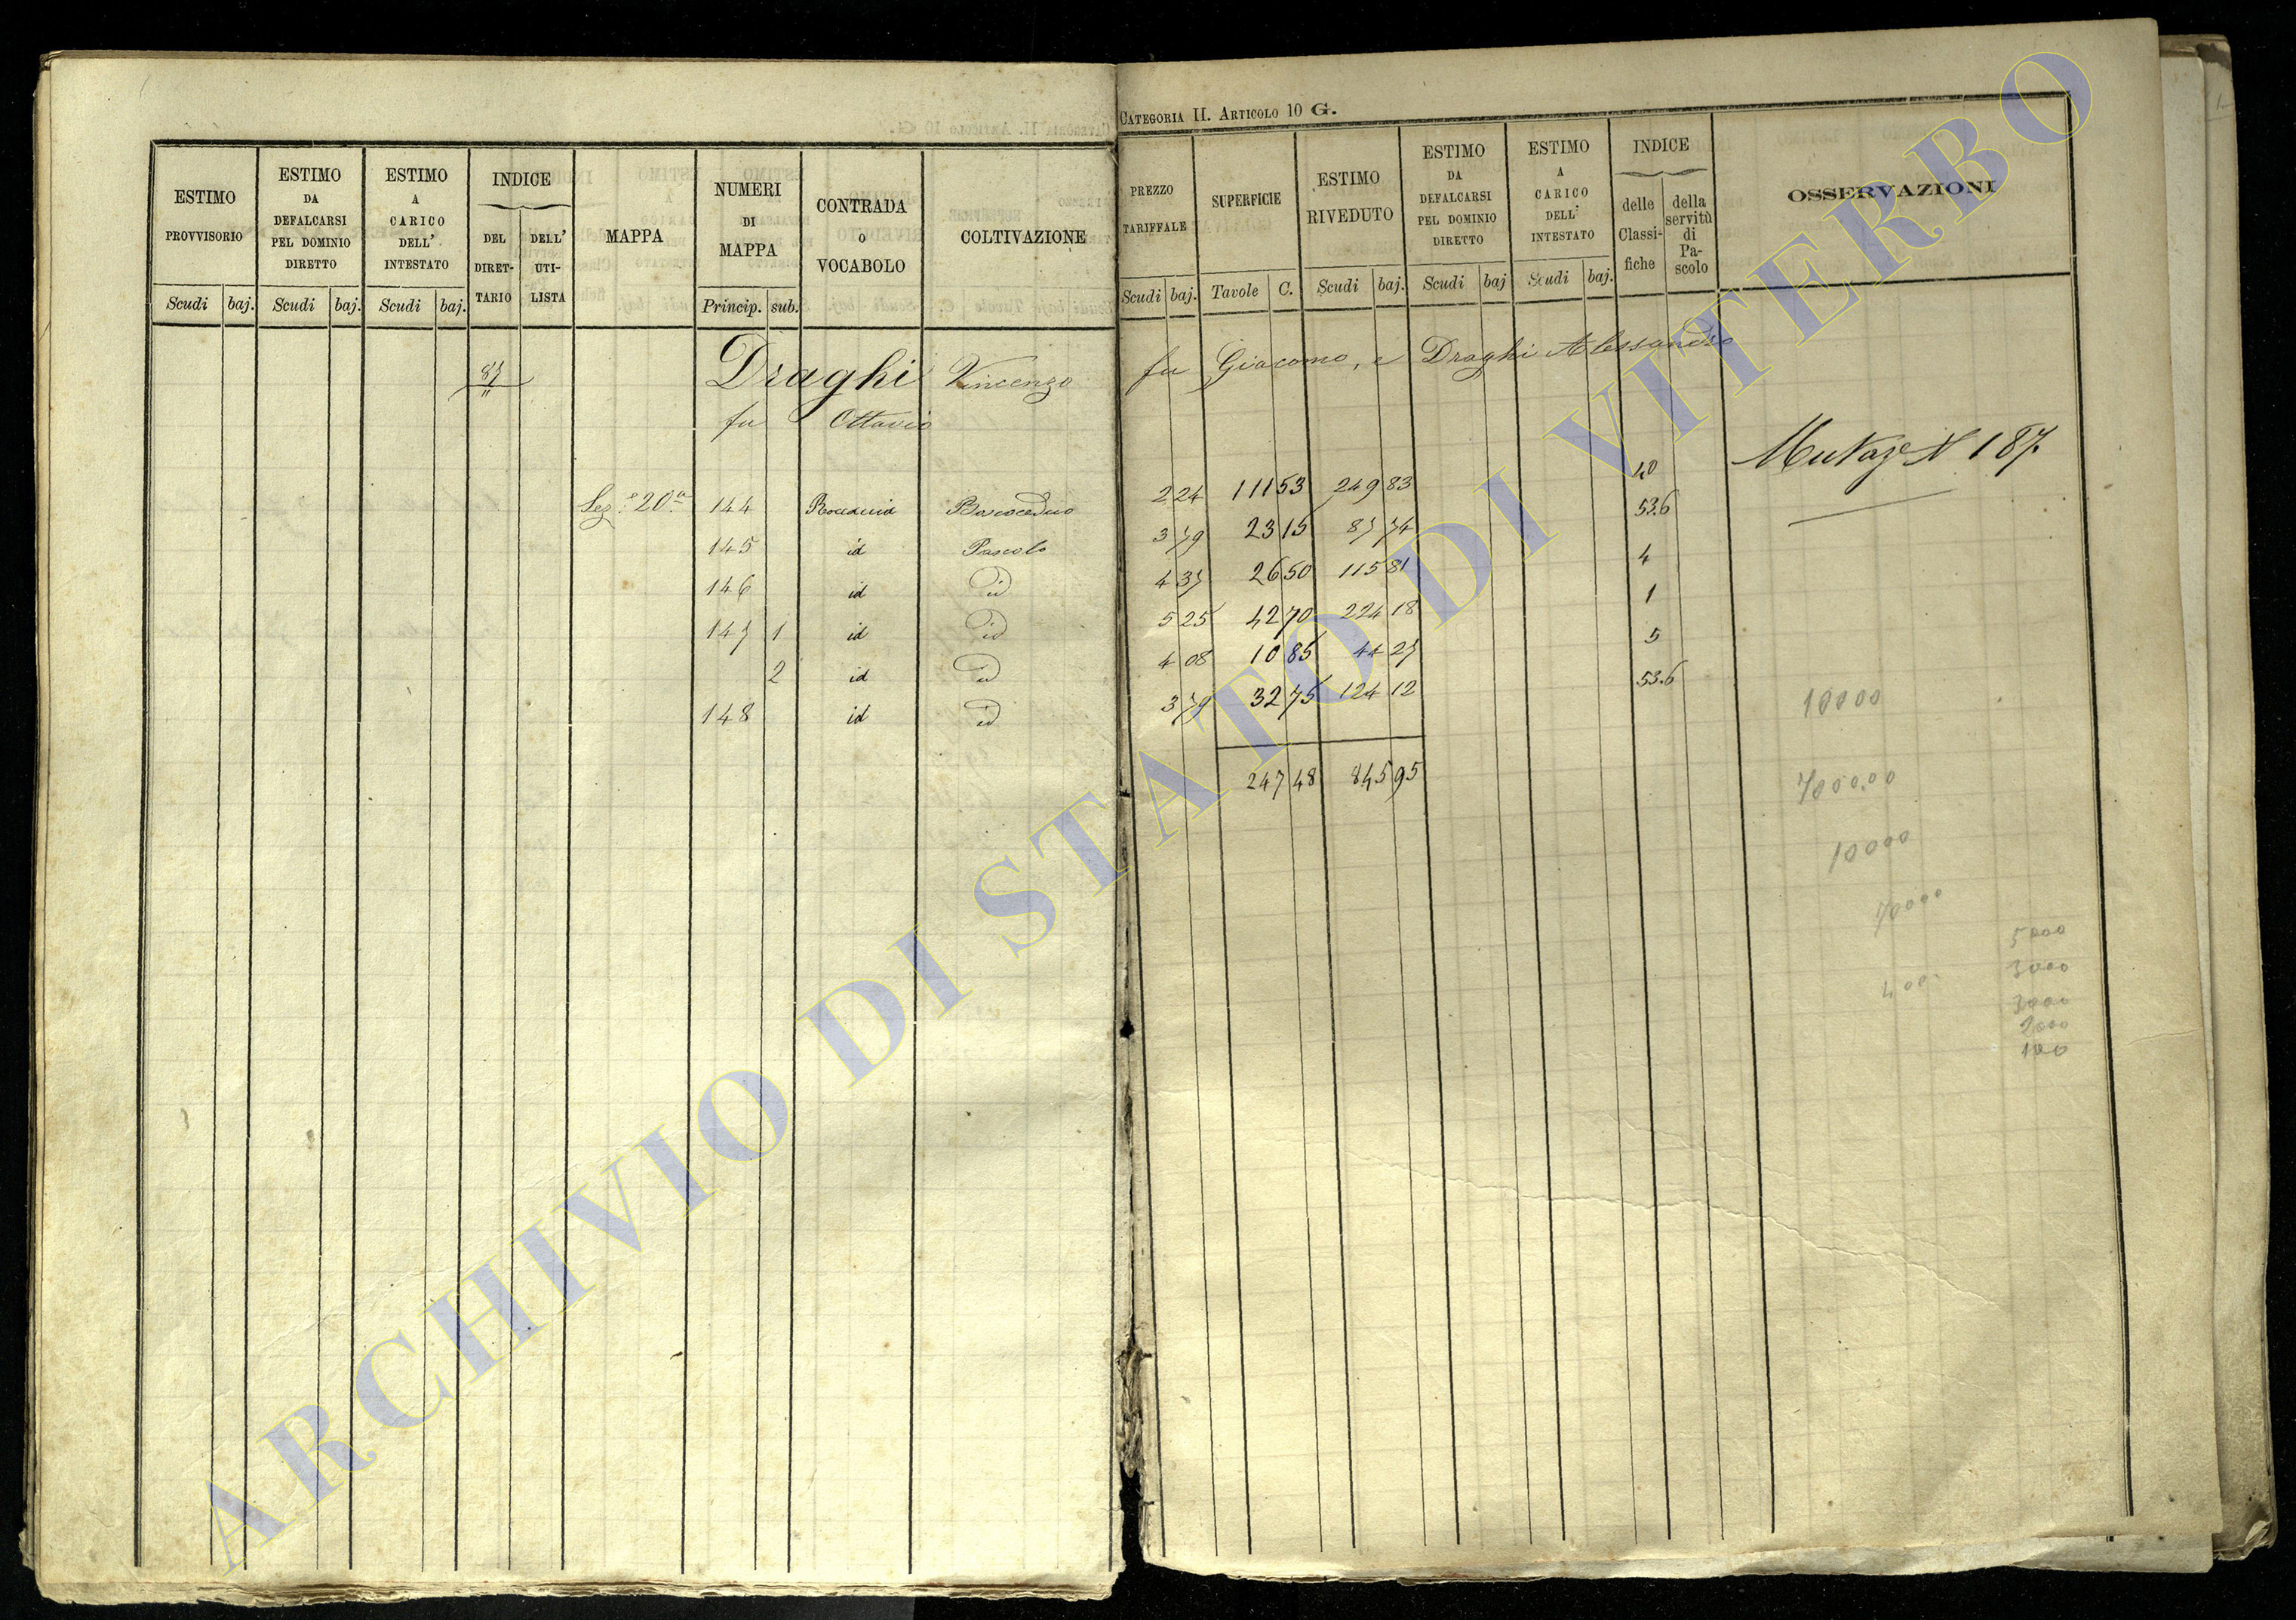 CATEGORIA II. ARTICOLO 10 G.
ESTIMO PROVVISORIO Scudi baj.
ESTIMO DA DEFALCARSI PEL DOMINIO DIRETTO Scudi baj.
ESTIMO A CARICO DELL' INTESTATO Scudi baj.
INDICE DEL DIRETTARIO DELL' UTILISTA
MAPPA
NUMERI DI MAPPA Princip. sub.
CONTRADA O VOCABOLO
COLTIVAZIONE
PREZZO TARIFFALE Scudi baj.
SUPERFICIE Tavole C.
ESTIMO RIVEDUTO Scudi baj.
ESTIMO DA DEFALCARSI PEL DOMINIO DIRETTO Scudi baj
ESTIMO A CARICO DELL' INTESTATO Scudi baj.
INDICE delle Classifiche della servitù di Pascolo
OSSERVAZIONI
87 Draghi Vincenzo fu Giacomo, e Draghi Alessandro
fu Ottavio
N 187.
Sez.e 20a 144 2 24 111 53 249 83 40
145 id Pascolo 3 79 23 15 87 74 53.6
146 id id 4 37 26 50 115 81 4
147 1 id id 5 25 42 70 224 18 1
2 id id 4 08 10 85 44 27 5
148 id id 3 79 32 75 124 12 53.6
247 48 845 95
10000
7000.00
10000
70000
5000
3000
400
3000
2000
100
ARCHIVIO DI STATO DI VITERBO